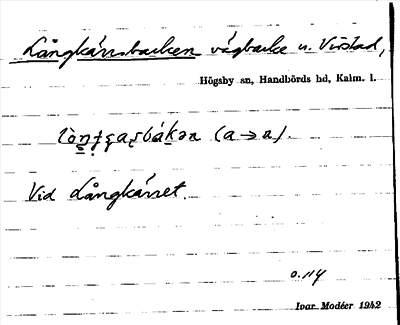 Långkärrsbacken vägbacke n. Virstad,
Högsby sn, Handbörds hd, Kalm. l.
(a→a).
Vid Långkärret.
o. 114
Ivar Modéer 1942